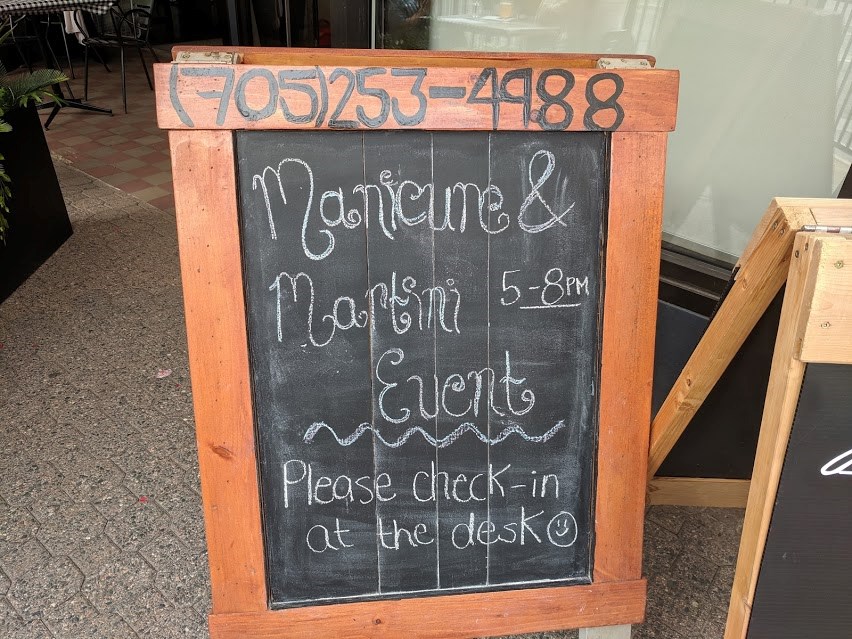 (705)253-4988
Manicure &
Martini 5-8PM
Event
Please check-in
at the desk